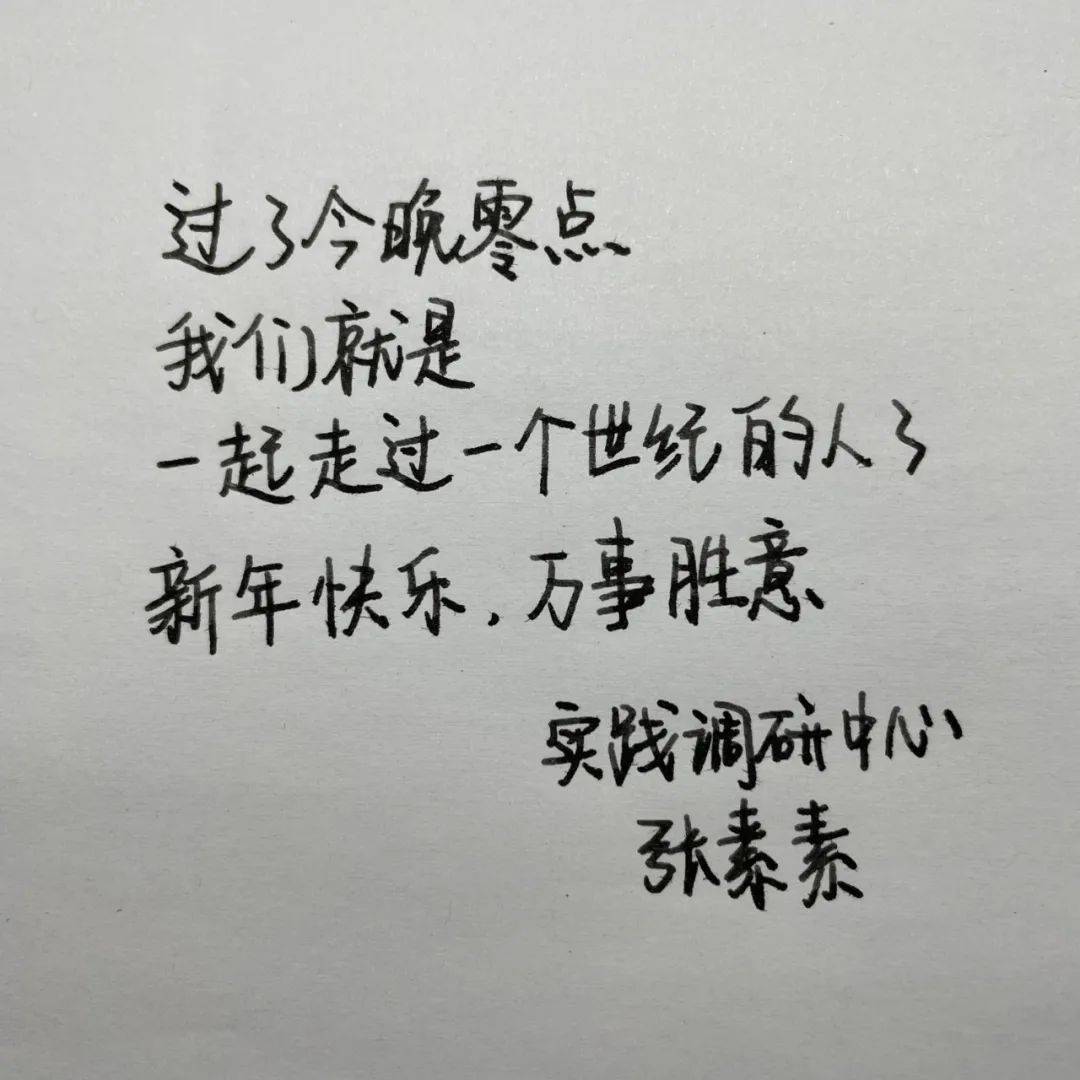 过了今晚零点
我们就是
一起走过一个世纪的人了
新年快乐，万事胜意
实践调研中心
张素素